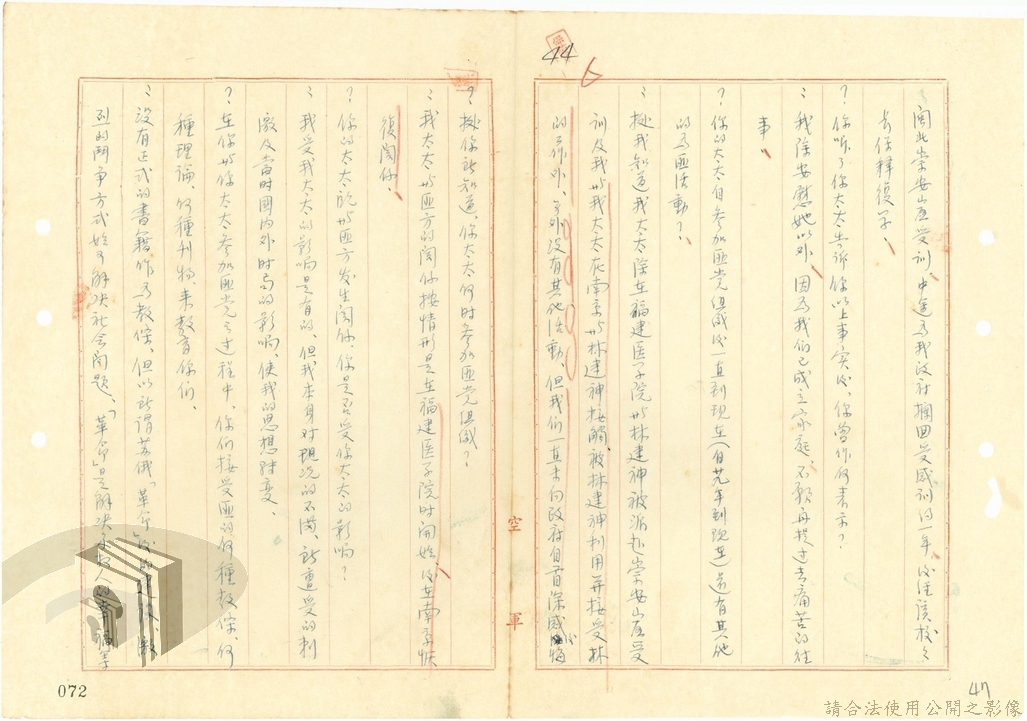 44
閩北崇安山區受訓、中途為我政府攔回受感訓約一年後經該校之
長保釋復学、
？你听了你太太告訴你以上事实後、你曾作何表示？
：我除安慰她以外、因為我們已成立家庭、不願再提过去痛苦的往
事、
？你的太太自参加匪党组織後一直到現在（自　年到現在）还有其他
的為匪活動？
：据我知道我太太除在福建医学院时林建神被派赴崇安山區受
訓及我与我太太在南京与林建神接觸被林建神利用并接受林
的工作外、另外没有其他活動、但我們一直未向政府自首深感後悔
？據你所知道、你太太何时参加匪党组織？
：我太太与匪方的関係按情形是在福建医学院时開始後在南京恢
復関係、
？你的太太既与匪方发生関係、你是否受你太太的影响？
：我受我太太的影响是有的、但我本身对現況的不满、所遭受的刺
激及当时國内外时局的影响、使我的思想轉变、
？在你与你太太参加匪党之过程中、你们接受匪的何種教保、何
種理論、何種刊物、来教育你们、
：没有正式的書籍作為教保、但以所謂苏俄「革命」後的建設、激
烈的鬥争方式始可解决社会問題、「革命」是解决多数人的幸福等
空軍
072
47
請合法使用公開之影像